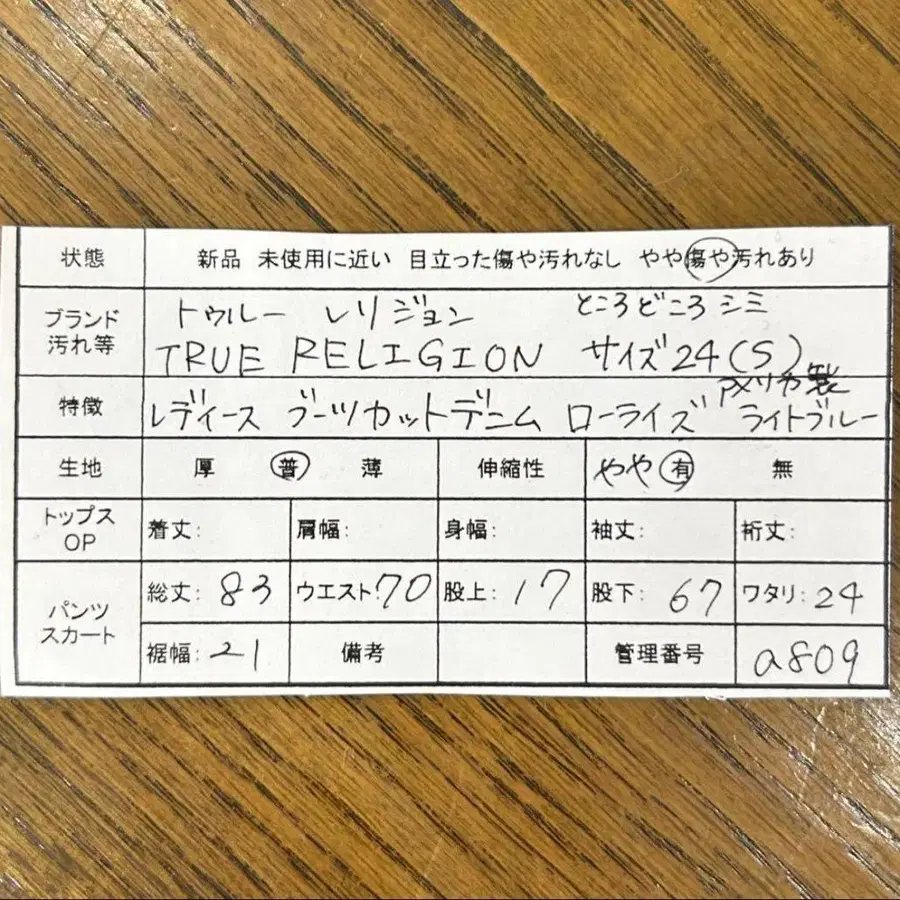 状態 新品 未使用に近い 目立った傷や汚れなし やや傷や汚れあり
ブランド トゥルー レリジョン ところどころシミ
汚れ等 TRUE RELIGION サイズ24(S)
アメリカ製
特徴 レディース ブーツカットデニム ローライズ ライトブルー
生地 厚 普 薄 伸縮性 やや 有 無
トップス
OP 着丈: 肩幅: 身幅: 袖丈: 裄丈:
パンツ
スカート 総丈: 83 ウエスト: 70 股上: 17 股下: 67 ワタリ: 24
裾幅: 21 備考 管理番号 a809